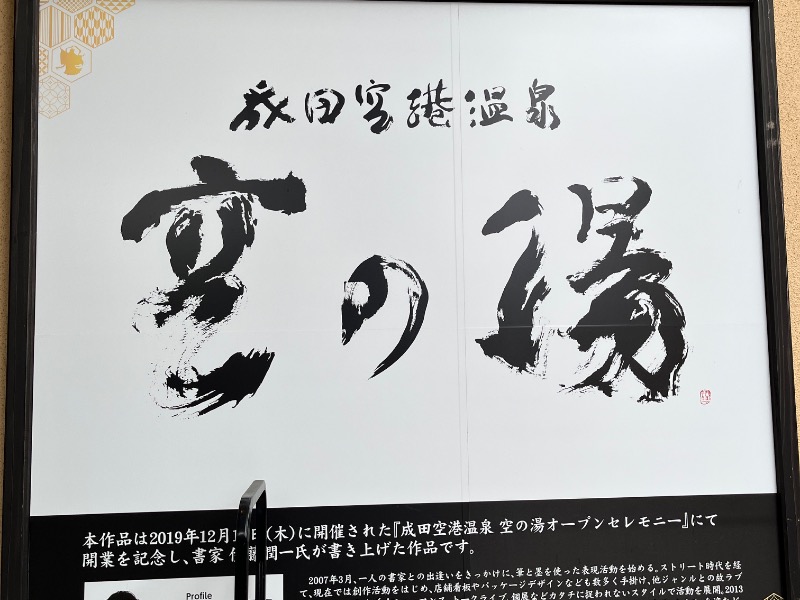 成田空港温泉
空の湯
本作品は2019年12月1 日(木)に開催された『成田空港温泉 空の湯オープンセレモニー』にて
開業を記念し、書家 藤潤一氏が書き上げた作品です。
Profile
2007年3月、一人の書家との出逢いをきっかけに、筆と墨を使った表現活動を始める。ストリート時代を経
て、現在では創作活動をはじめ、店舗看板やパッケージデザインなども数多く手掛け、他ジャンルとの故ラブ
トークライブ、個展などカタチに捉われないスタイルで活動を展開。2013